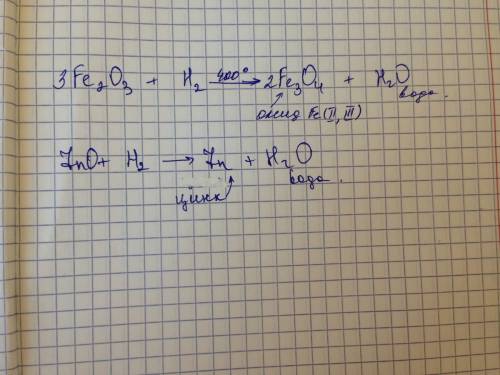 3Fe₂O₃ + H₂ 400° → 2Fe₃O₄ + H₂O
вода.
оксид Fe(II, III)
ZnO + H₂ → Zn + H₂O
цинк вода.